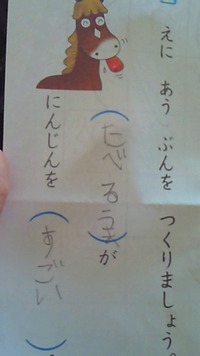 えに あう ぶんを つくりましょう。
(たべるうま)が
にんじんを (すごい)